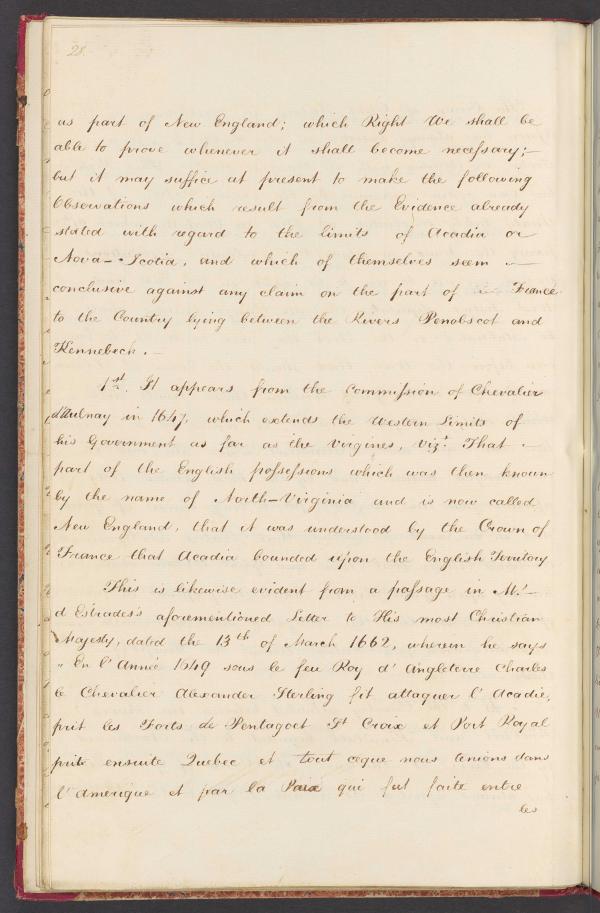 28.
as part of New England; which Right We shall be
able to prove whenever it shall become necessary;—
but it may suffice at present to make the following
Observations which result from the Evidence already
stated with regard to the limits of Acadia or
Nova-Scotia, and which of themselves seem —
conclusive against any claim on the part of — France
to the Country lying between the Rivers Penobscot and
Kennebeck. —
1st. It appears from the Commission of Chevalier
d'Aulnay in 1647, which extends the Western Limits of
his Government as far as the Virgines, Vizt. That —
part of the English possessions which was then known
by the name of North-Virginia and is now called
New England, that it was understood by the Crown of
France that Acadia bounded upon the English Territory
This is likewise evident from a passage in Mr.—
d'Estrades's aforementioned Letter to His most Christian
Majesty, dated the 13th of March 1662, wherein he says
" En l'Anneé 1549 sous le feu Roy d'Angleterre Charles
le Chevalier Alexander Sterling fit attaquer l'Acadie,
prit les Forts de Pentagoet St Croix et Port Royal
prit ensuite Quebec et tout ceque nous tenions dans
l'Amerique et par la Paix qui fut faite entre
les